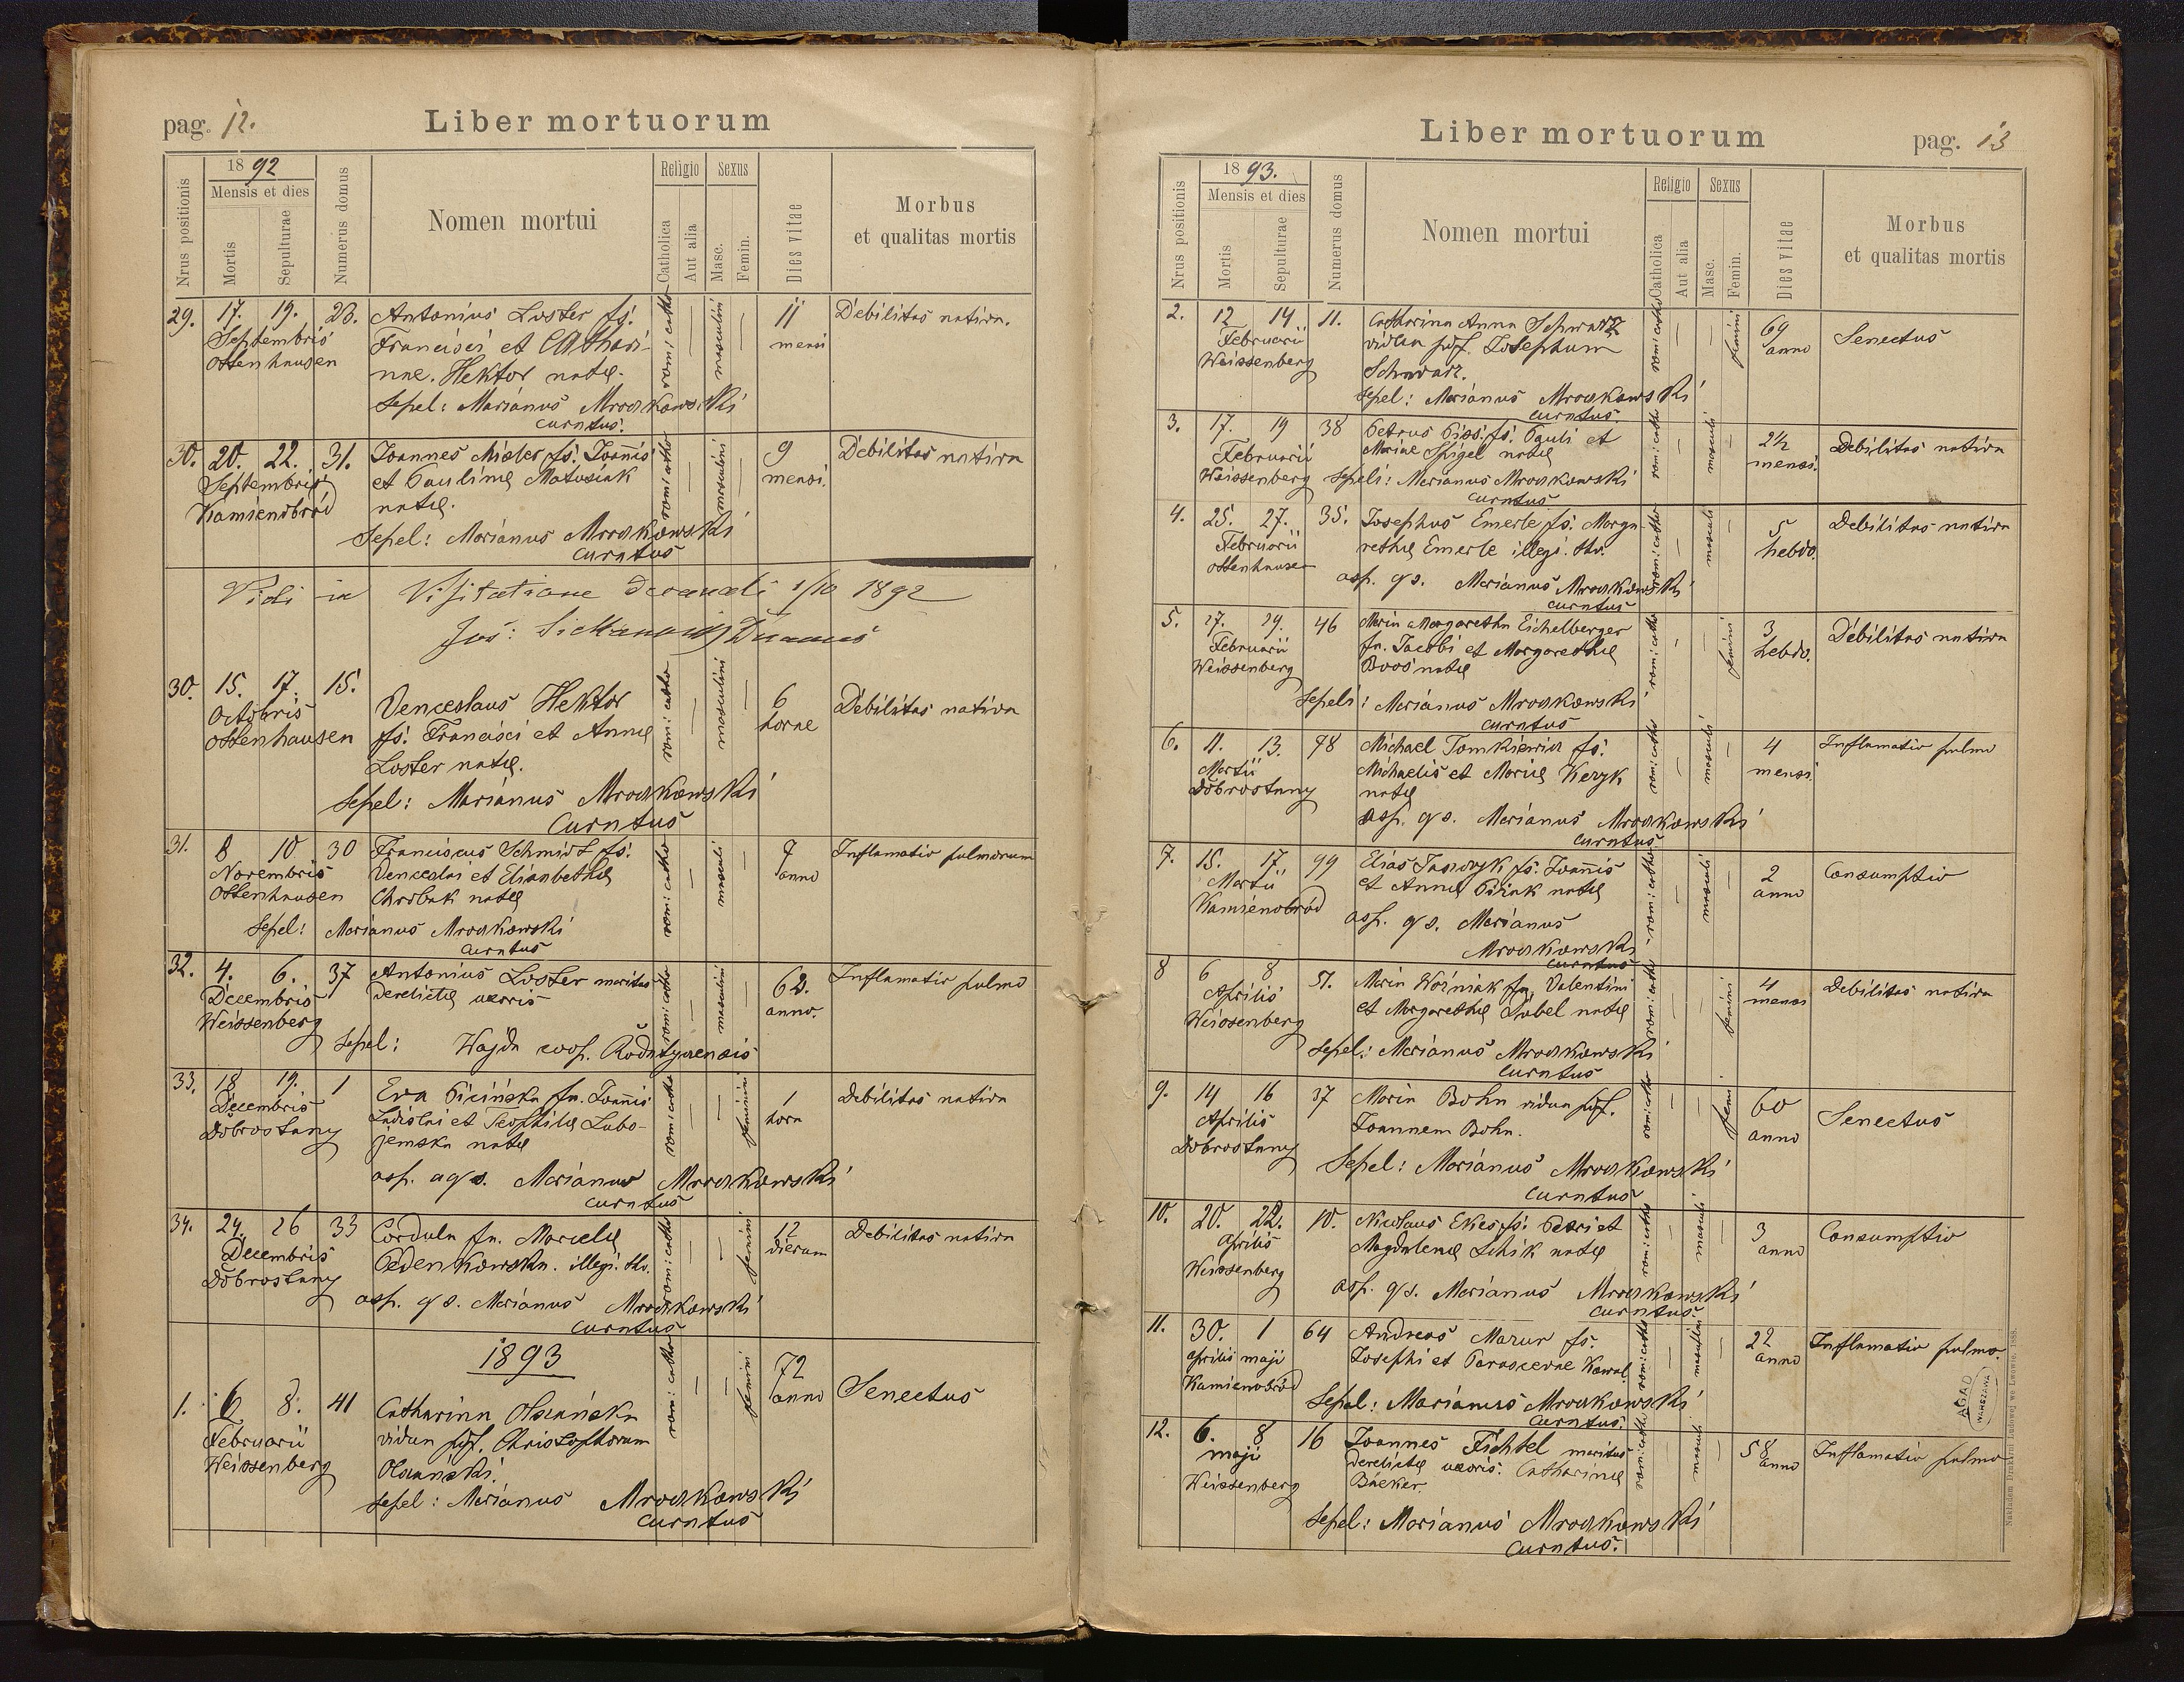 pag. 12.
Liber mortuorum
Nrus positionis
1892
Mensis et dies
Mortis
Sepulturae
Numerus domus
Nomen mortui
Religio
Catholica
Aut alia
Sexus
Masc.
Femin.
Dies vitae
Morbus
et qualitas mortis
29. 17. 19. 23. Antonius Loster fs: rom: catho — masculini — 11 Debilitas nativa.
Septembris Francisci et Cathari- mensi
Ottenhausen nae. Hektor natae.
Sepel: Marianus Mroczkowski
curatus.
30. 20. 22. 31. Joannes Misler fs: Joannis rom: catho — masculini — 9 Debilitas nativa
Septembris et Paulinae Matusiak mensi.
Kamienobród natae.
Sepel: Marianus Mroczkowski
curatus
Vidi in Visitatione decanali 1/10 1892
Jos:
30. 15. 17. 15. Venceslaus Hektor rom: catho — masculini — 6 Debilitas nativa
Octobris fs: Francisci et Annae horae
Ottenhausen Loster natae.
Sepel: Marianus Mroczkowski
Curatus
31. 8 10 30 Franciscus Schmidt fs: rom: catho — masculi — 7 Inflamatio pulmorum
Novembris Venceslai et Elisabethae anno
Ottenhausen Chrobak natae
Sepel: Marianus Mroczkowski
curatus
32. 4. 6. 37 Antonius Loster maritus rom: catho — masculini — 62. Inflamatio pulmo
Decembris derelictae uxoris anno.
Weissenberg
Sepel: Wajda coop. Rodatyczensis
33. 18 19. 1 Eva Picińska fa. Joannis rom: catho — — feminini 1 Debilitas nativa
Decembris Ladislai et Teophilae Lubo- hora
Dobrostany jemska natae
asp. ags. Marianus Mroczkowski
curatus
34. 24. 26 33 Cordula fa. Marcelae rom: catho — — feminini 12 Debilitas nativa
Decembris Pedenkowska. illegi. tho. dierum
Dobrostany
asp. gs. Marianus Mroczkowski
curatus
1893
1. 6 8. 41 Catharina Olszańska rom: catho — — feminini 72 Senectus
Februarii vidua post. Christophorum anno
Weissenberg Olszański.
Sepel: Marianus Mroczkowski
curatus
Liber mortuorum
pag. 13
Nrus positionis
1893.
Mensis et dies
Mortis
Sepulturae
Numerus domus
Nomen mortui
Religio
Catholica
Aut alia
Sexus
Masc.
Femin.
Dies vitae
Morbus
et qualitas mortis
2. 12 14 11. Catharina Anna Schwarz rom: catho — — feminini 69 Senectus
Februarii vidua post. Josephum anno
Weissenberg Schwarz.
Sepel: Marianus Mroczkowski
curatus
3. 17. 19 38 Petrus Piss. fs: Pauli et rom: catho — masculi — 2½ Debilitas nativa
Februarii Mariae Spigel natae mensi.
Weissenberg Sepeli: Marianus Mroczkowski
curatus
4. 25. 27. 35. Josephus Emerle fs: Marga- rom: catho — masculi — 5 Debilitas nativa
Februarii rethae Emerle illegi. tho. hebdo.
Ottenhausen asp. gs. Marianus Mroczkowski
curatus
5. 27. 29. 46 Maria Margaretha Eichelberger rom: catho — — feminini 3 Debilitas nativa
Februarii fa. Jacobi et Margarethae hebdo.
Weissenberg Boos natae
Sepeli: Marianus Mroczkowski
curatus
6. 11. 13. 78 Michael Tomkiewicz fs: rom: catho — masculi — 4 Inflamatio pulmo
Martii Michaelis et Mariae Keryk mensi
Dobrostany natae
asp. gs. Marianus Mroczkowski
curatus
7. 15. 17 99 Elias fs: Joannis rom: catho — masculi — 2 Consumptio
Martii et Annae natae anno
Kamienobród asp. gs. Marianus
Mroczkowski
curatus
8 6 8 51. Maria Woźniak fa. Valentini rom: catho — — feminini 4 Debilitas nativa
Aprilis et Margarethae Dubel natae mensi
Weissenberg
Sepel: Marianus Mroczkowski
Curatus
9. 14 16 37 Maria Bohn vidua post. rom: catho — — femi 60 Senectus
Aprilis Joannem Bohn. anno
Dobrostany Sepel: Marianus Mroczkowski
curatus
10. 20. 22. 10. Nicolaus Ekes fs: Petri et rom: catho — masculi — 3 Consumptio
Aprilis Magdalenae Schik natae anno
Weissenberg
asp. gs. Marianus Mroczkowski
curatus.
11. 30. 1 64 Andreas Mazur fs. rom: catho — masculini — 22 Inflamatio pulmo.
Aprilis maji Josephi et Parascevae Kowal. anno
Kamienobród Sepel: Marianus Mroczkowski
Curatus.
12. 6. 8 16 Joannes Fichtel maritus rom: catho — masculi — 58 Inflamatio pulmo
maji derelictae uxoris. Catharinae anno
Weissenberg Bäcker.
Sepel: Marianus Mroczkowski
curatus.
AGAD
WARSZAWA
Nakładem Drukarni Ludowej we Lwowie. 1888.